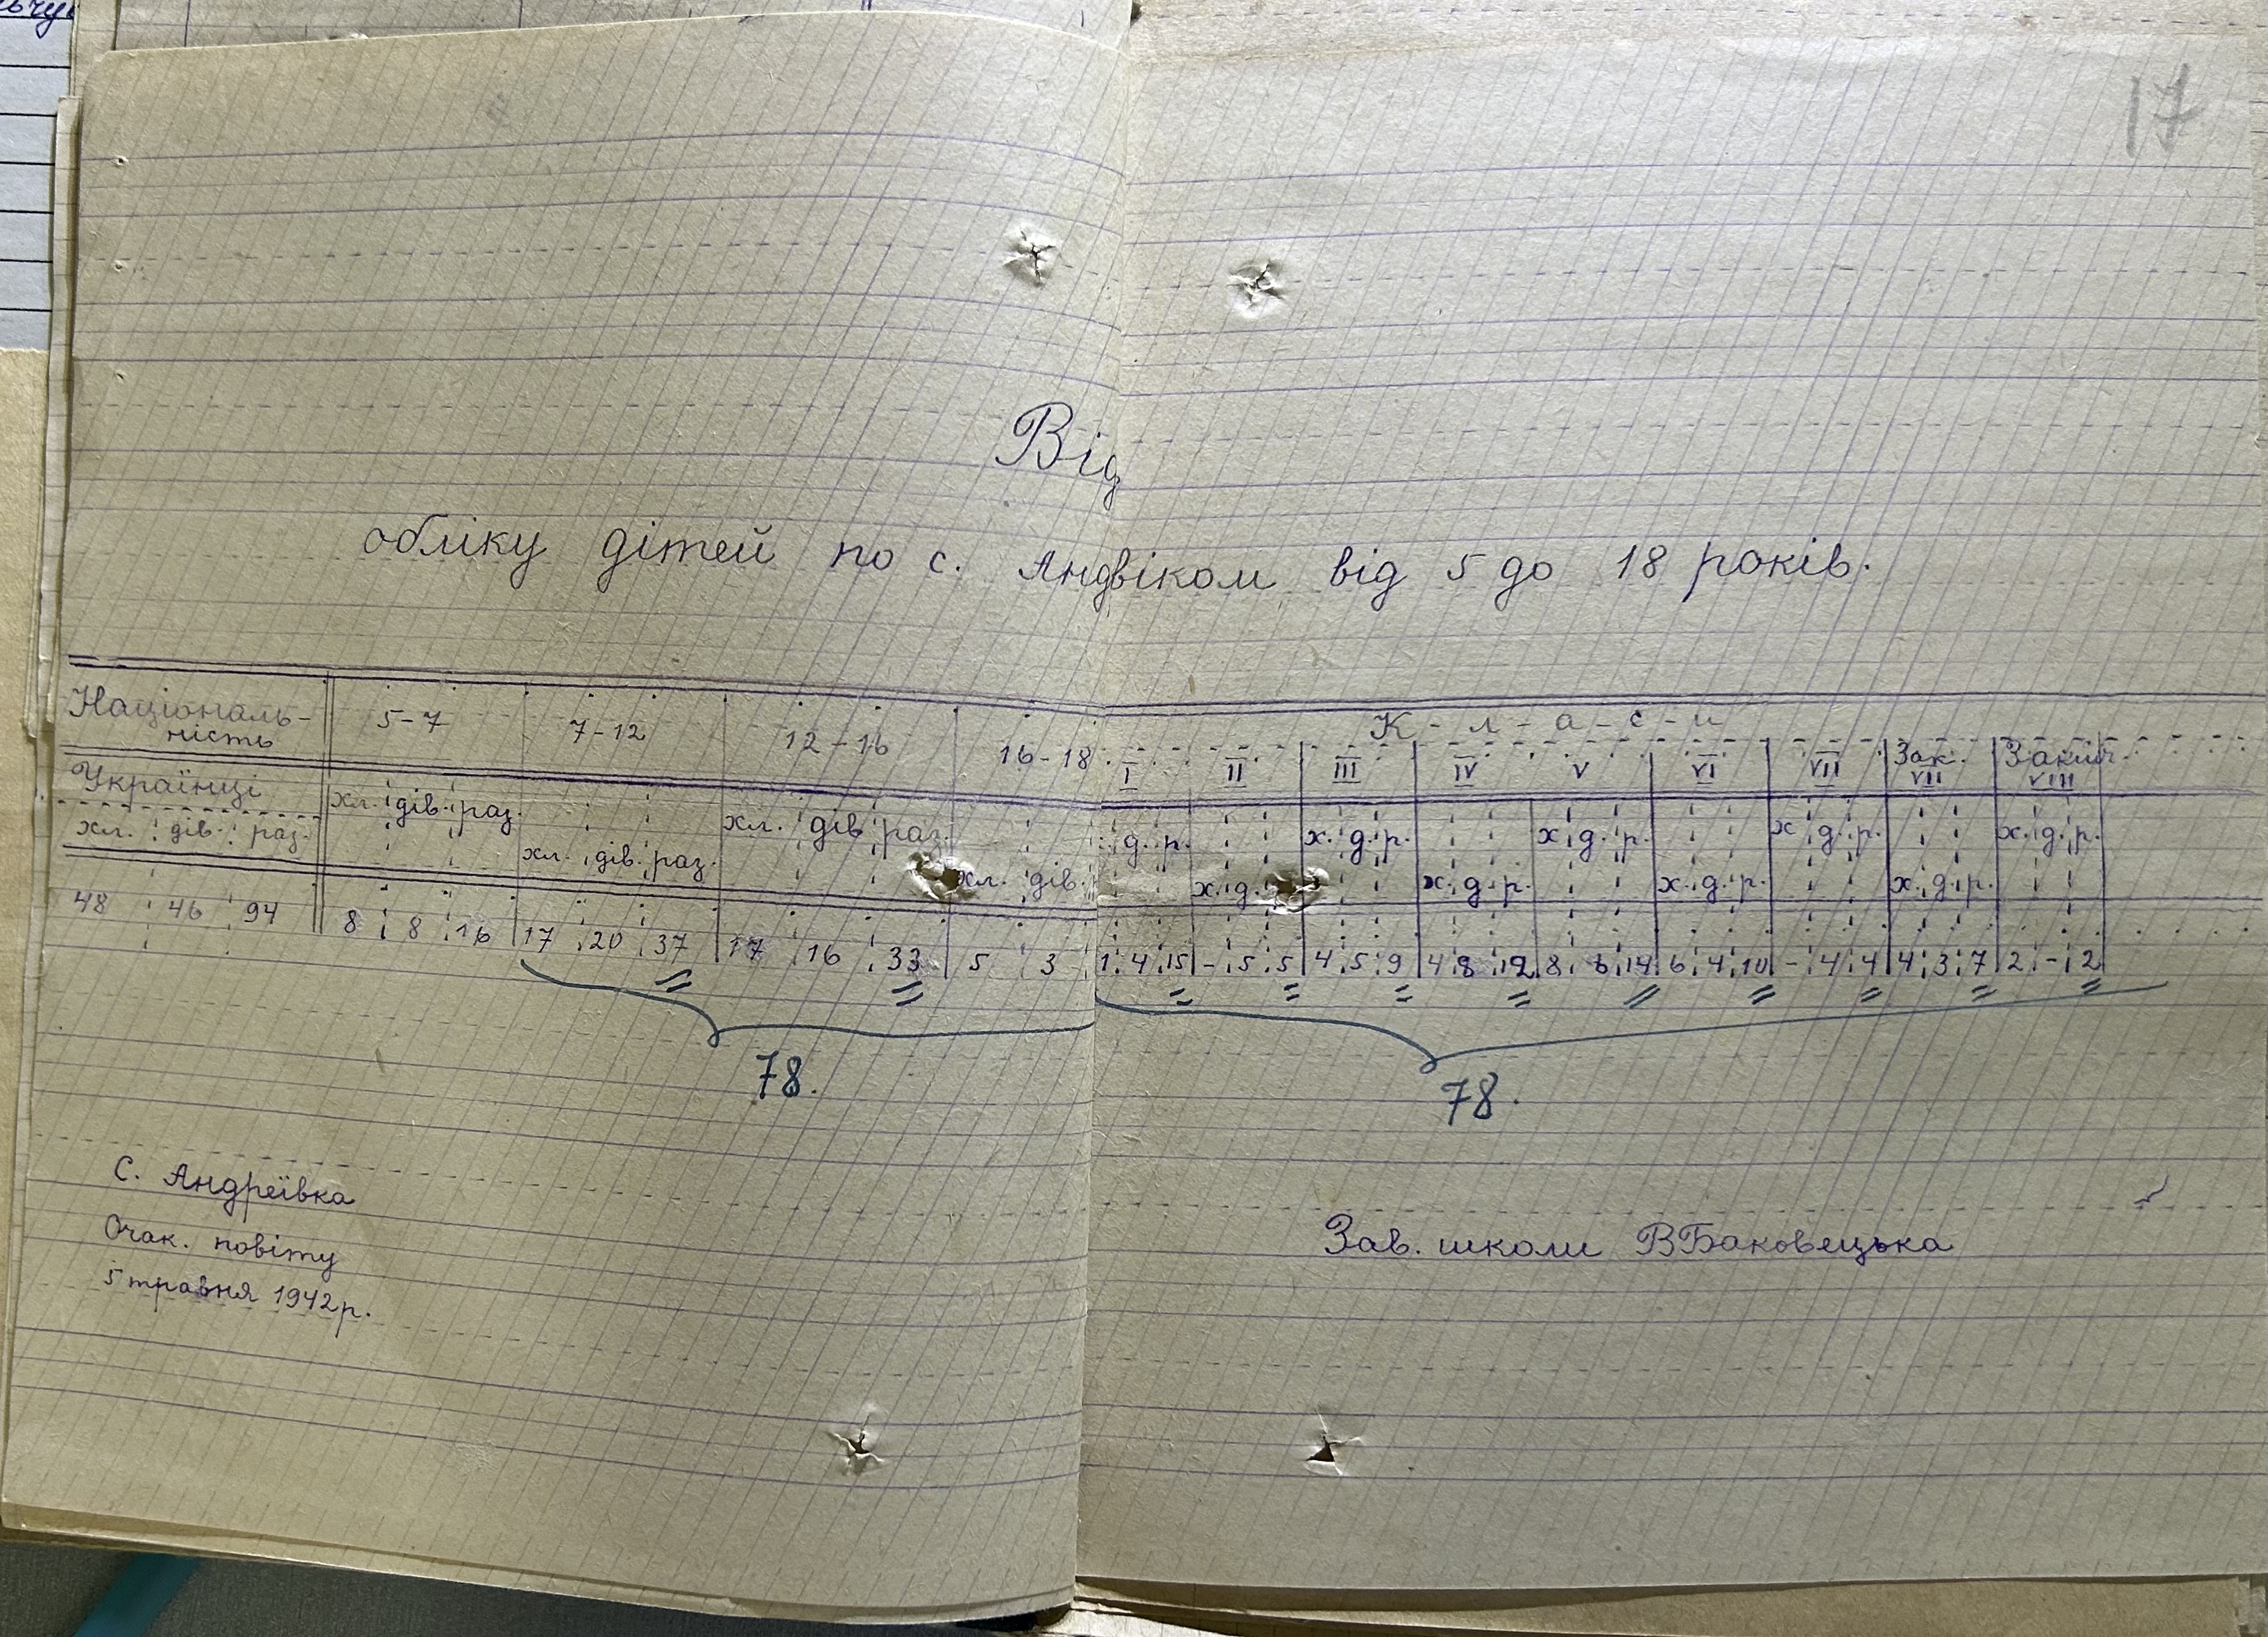 17
Від
обліку дітей по с. Андвіком від 5 до 18 років.
Національ- 5-7 7-12 12-16 16-18 К-л-а-с-и
ність I II III IV V VI VII Зак. VII Закінч. VIII
Українці хл. дів. раз. хл. дів. раз. д. р. х. д. р. х. д. р. х д. р. х. д. р.
хл. дів. раз. хл. дів. раз. хл. дів. х. д. х. д. р. х. д. р. х. д. р.
48 46 94 8 8 16 17 20 37 17 16 33 5 3 1 4 15 - 5 5 4 5 9 4 8 12 8 6 14 6 4 10 - 4 4 4 3 7 2 - 2
78. 78.
С. Андреївка
Очак. повіту
5 травня 1942 р.
Зав. школи ВБаковецька